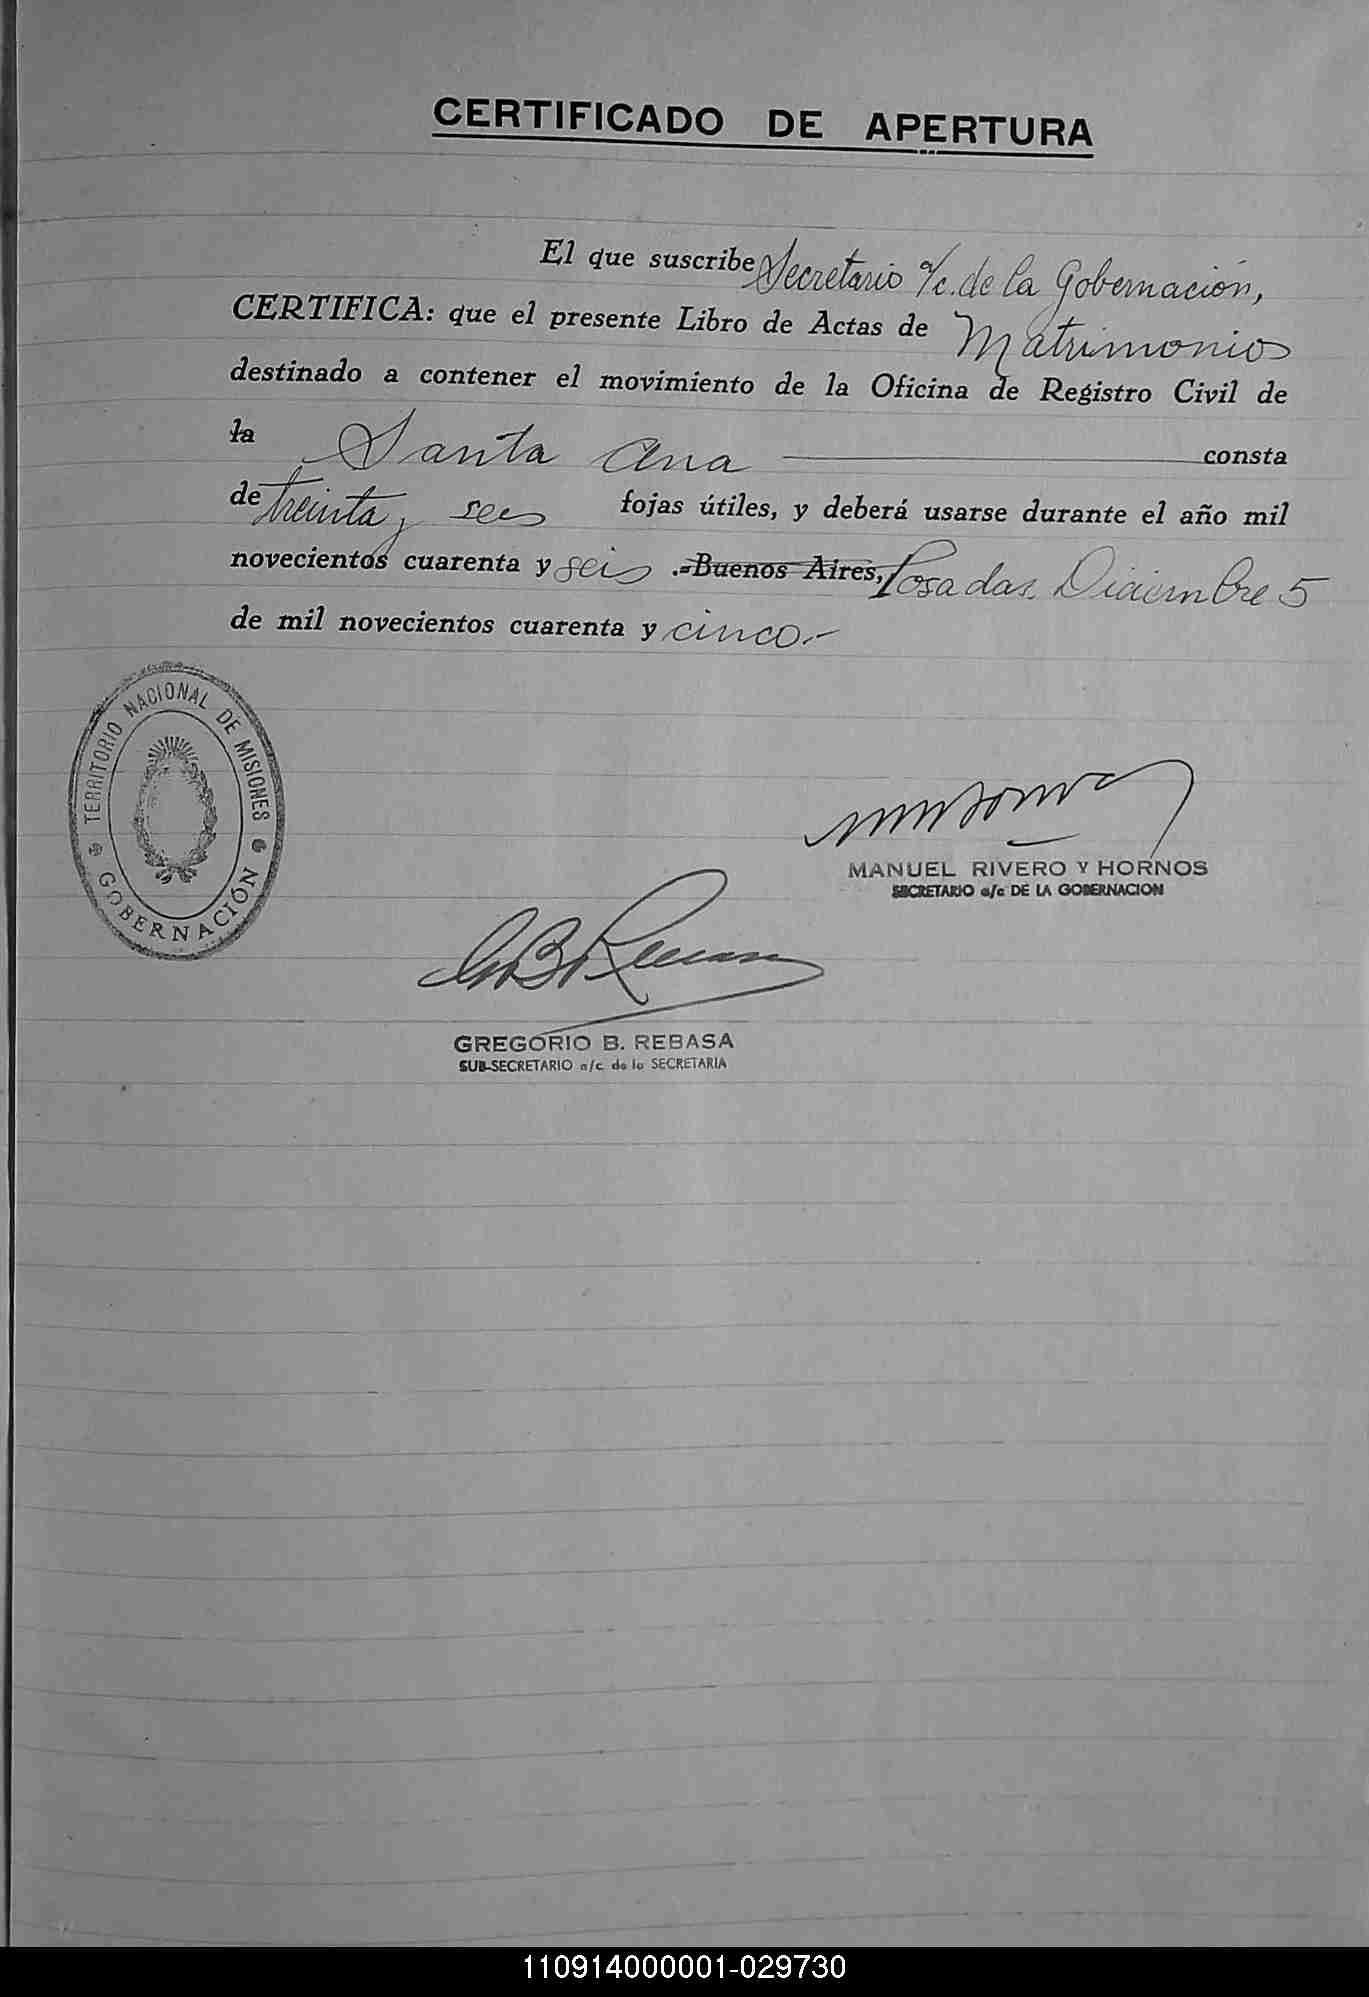 CERTIFICADO DE APERTURA
El que suscribe Secretario a/c. de la Gobernación,
CERTIFICA: que el presente Libro de Actas de Matrimonios
destinado a contener el movimiento de la Oficina de Registro Civil de
la Santa Ana consta
de treinta y seis fojas útiles, y deberá usarse durante el año mil
novecientos cuarenta y seis .-Buenos Aires, Posadas, Diciembre 5
de mil novecientos cuarenta y cinco.-
TERRITORIO NACIONAL DE MISIONES
GOBERNACIÓN
MANUEL RIVERO Y HORNOS
SECRETARIO a/c DE LA GOBERNACION
GREGORIO B. REBASA
SUB-SECRETARIO a/c de la SECRETARIA
110914000001-029730